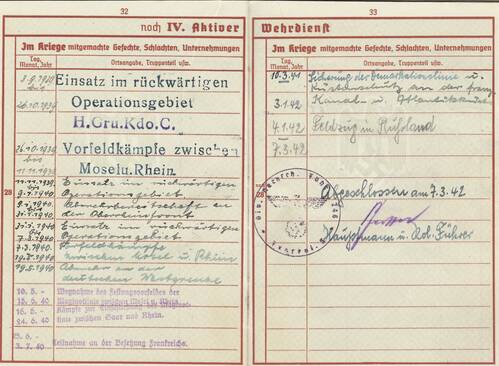 32
noch IV. Aktiver
Im Kriege mitgemachte Gefechte, Schlachten, Unternehmungen
Tag, Monat, Jahr
Ortsangabe, Truppenteil usw.
Einsatz im rückwärtigen
Operationsgebiet
H.Gru.Kdo.C.
26.10.1939
Vorfeldkämpfe zwischen
Mosel u. Rhein.
28
11.11.1939
Einsatz im rückwärtigen
9.1.1940
Operationsgebiet
an der Oberrheinfront
31.1.1940
Einsatz im rückwärtigen
bis
Operationsgebiet
Vorfeldkämpfe
zwischen Mosel u. Rhein
19.5.1940
Abwehr an der
deutschen Westgrenze
10. 5. -
Wegnahme des Festungsvorfeldes der
13. 6. 40
Maginotlinie zwischen Mosel u. Rhein.
24. 6. 40
linie zwischen Saar und Rhein.
25. 6. -
Teilnahme an der Besetzung Frankreichs.
33
Wehrdienst
Im Kriege mitgemachte Gefechte, Schlachten, Unternehmungen
Tag, Monat, Jahr
Ortsangabe, Truppenteil usw.
10.3.41
Sicherung der Demarkationslinie u.
Küstenschutz an der franz.
3.1.42
Kanal- u. Atlantikküste
4.1.42
Feldzug in Rußland
7.3.42
28
Abgeschlossen am 7.3.42
Hauptmann u. Kol. Führer